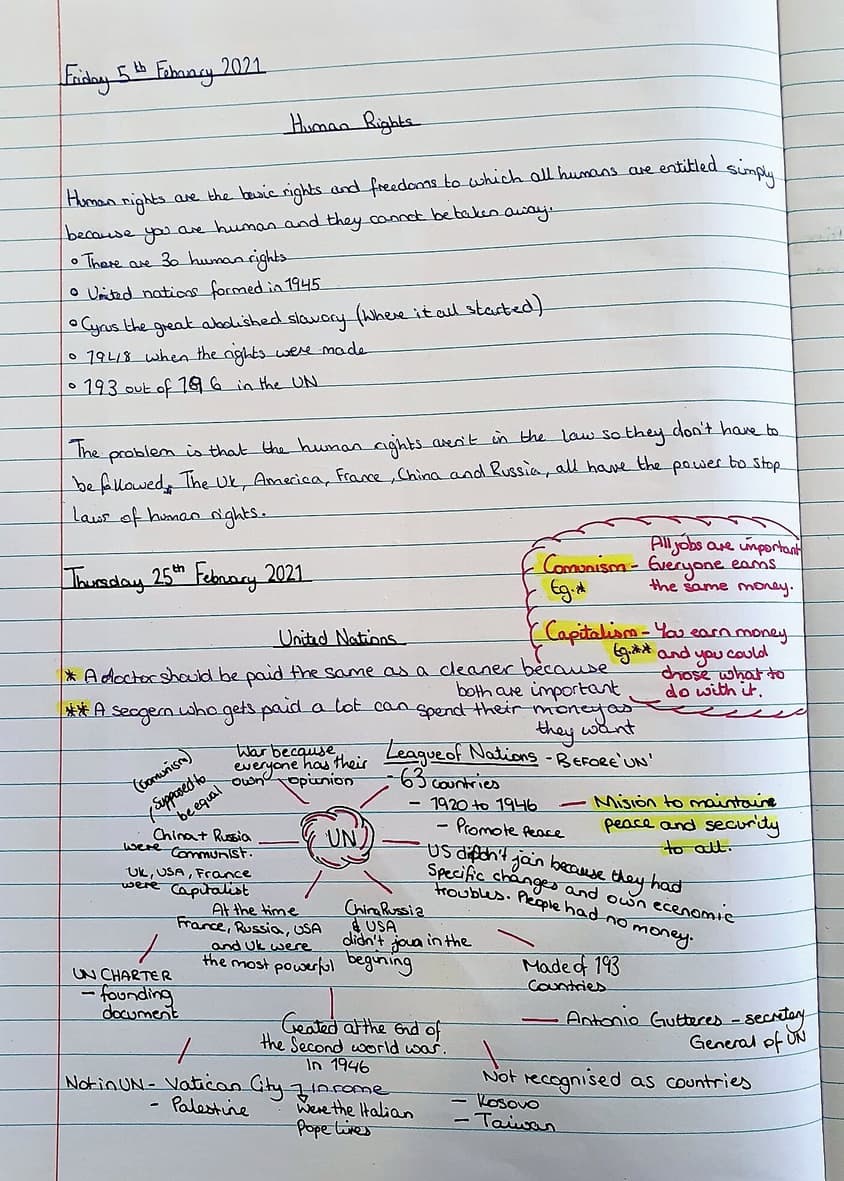 Friday 5th Febuary 2021
Human Rights
Human rights are the basic rights and freedoms to which all humans are entitled simply
because you are human and they cannot be taken away.
• There are 30 human rights
• United nations formed in 1945
• Cyrus the great abolished slavory (Where it all started)
• 1948 when the rights were made
• 193 out of 196 in the UN
The problem is that the human rights aren't in the law so they don't have to
be followed. The UK, America, France, China and Russia, all have the power to stop
laws of human rights.
Thursday 25th February 2021
All jobs are important
Comunism - Everyone earns
Eg.* the same money.
Capitalism - You earn money
Eg.** and you could
chose what to
do with it.
United Nations
* A doctor should be paid the same as a cleaner because
both are important
** A seogern who gets paid a lot can spend their money as
they want
(comunism)
supposed to
be equal
War because
everyone has their
own opinion
League of Nations - BEFORE 'UN'
- 63 countries
- 1920 to 1946 — Mision to maintaine
- Promote Peace peace and security
to all.
UN
China + Russia
were Communist.
UK, USA, France
were Capitalist
US didn't join because they had
Specific changes and own ecenomic
troubles. People had no money.
At the time
France, Russia, USA
and UK were
the most powerful
China Russia
& USA
didn't join in the
begining
UN CHARTER
- founding
document
Made of 193
Countries
Created at the end of
the Second world war.
In 1946
Antonio Gutteres - secretary
General of UN
Not in UN - Vatican City → in rome
- Palestine Were the Italian
Pope lives
Not recognised as countries
- Kosovo
- Taiwan